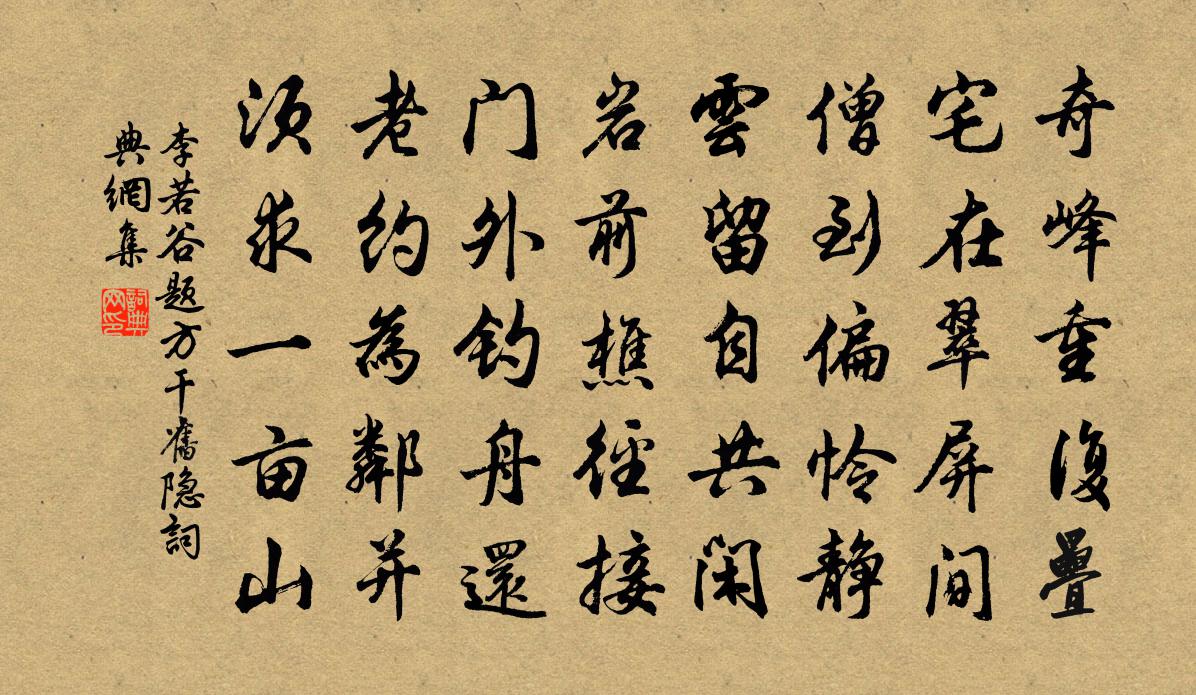 奇峰重復疊
宅在翠屏間
僧到偏怜静
雲留自共閑
岩前樵徑接
门外釣舟還
老約為鄰并
須求一亩山
李若谷题方干舊隐詞
典網集
詞典
网印